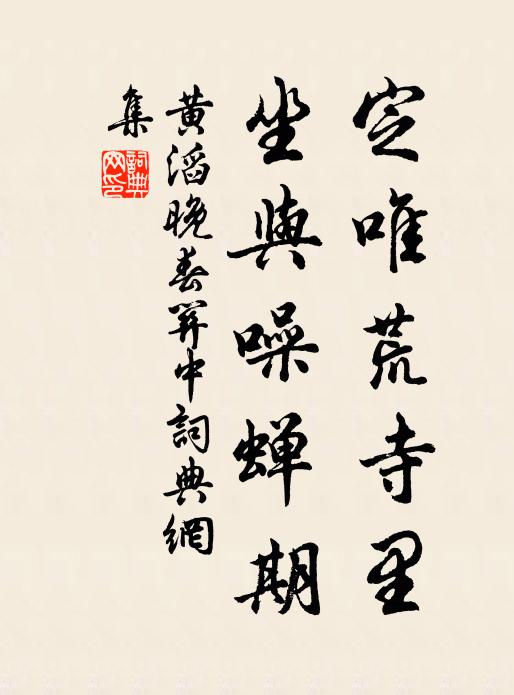 定唯荒寺里
坐與噪蝉期
黄滔晚春關中詞典網
集
詞典
网印